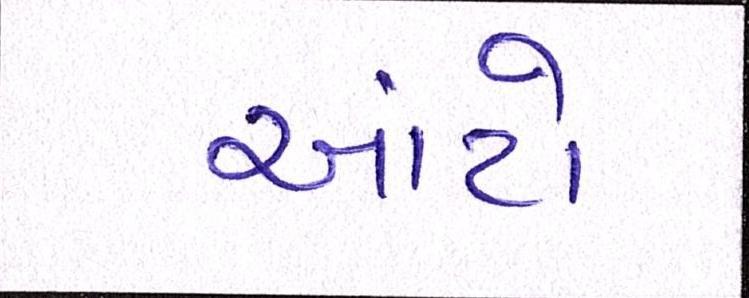 આંટો